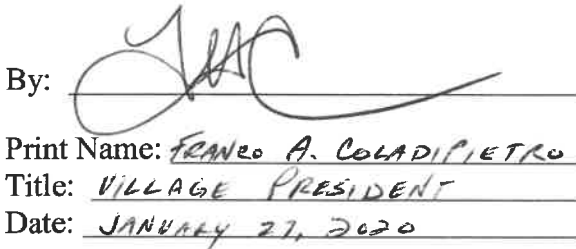 By:
Print Name: FRANCO A. COLADIPIETRO
Title: VILLAGE PRESIDENT
Date: JANUARY 27, 2020